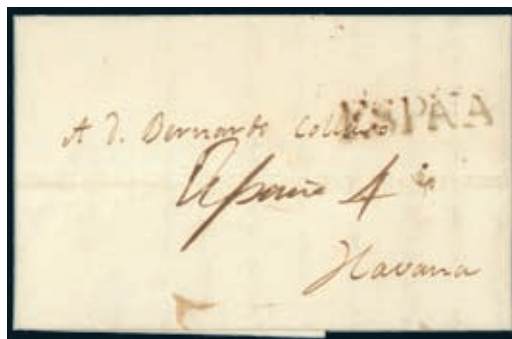 ESPAÑA
A D. Bernardo Collado
España 4 rs
Havana